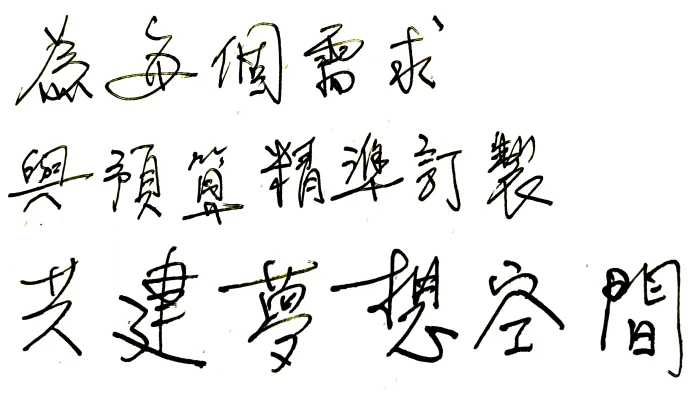 為每個需求
與預算精準訂製
共建夢想空間